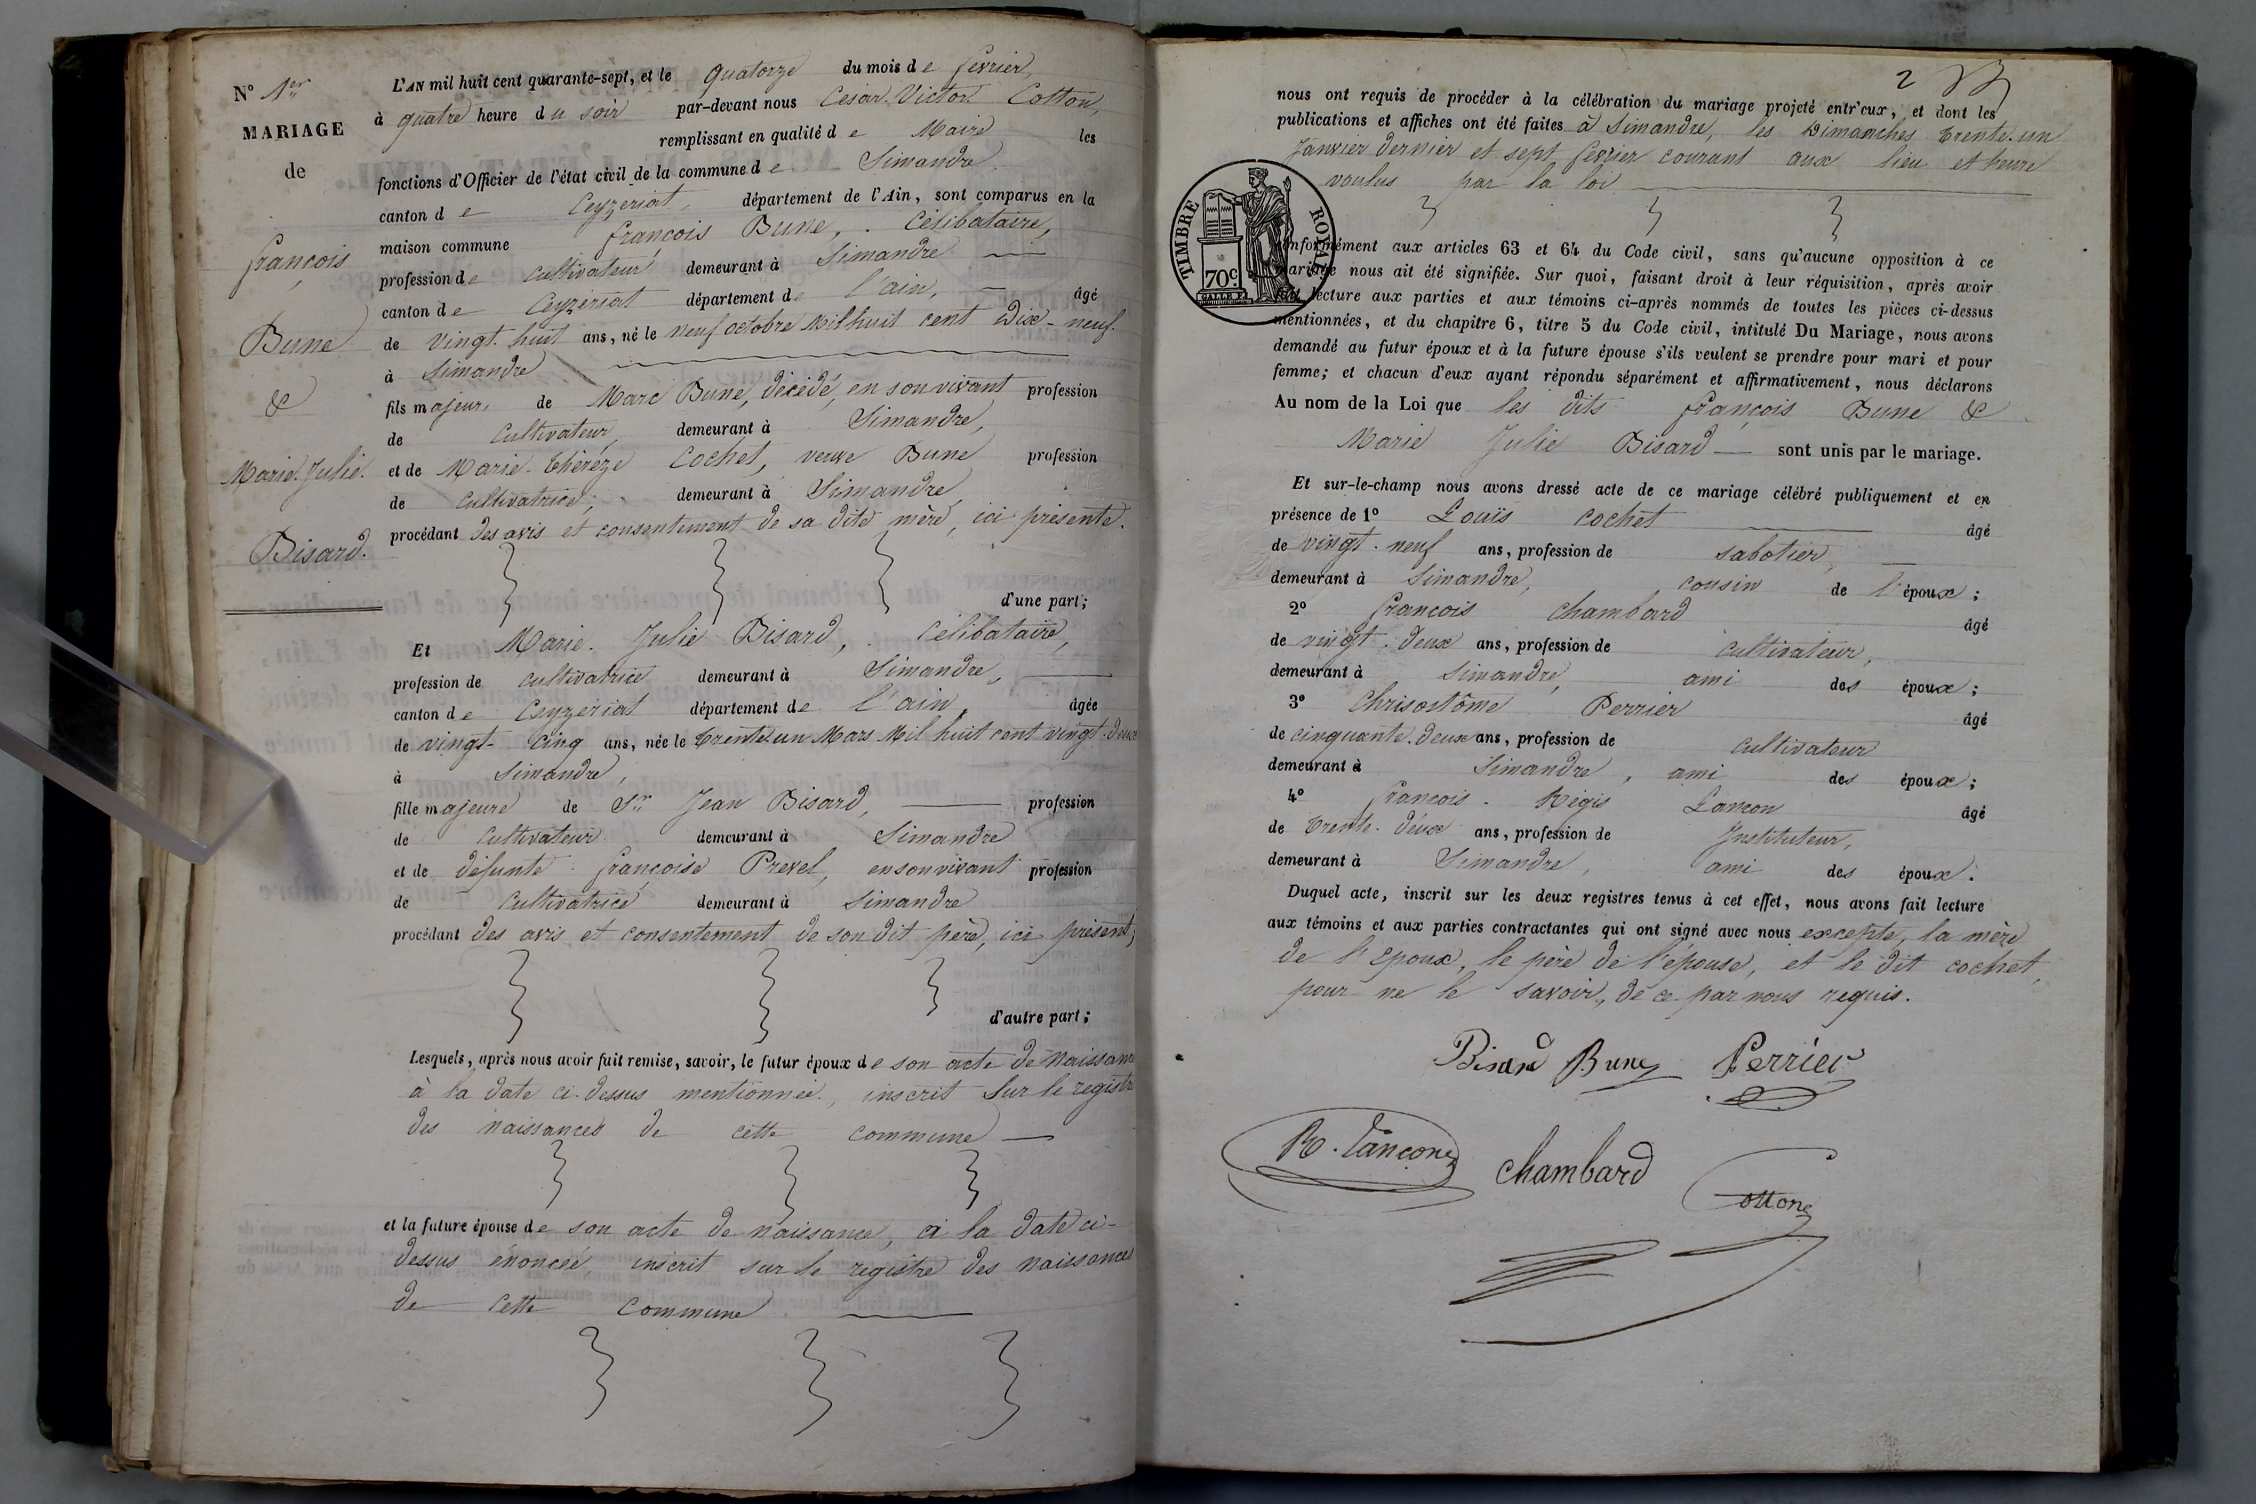 N° 1er
MARIAGE
de
françois
Bune
&
Marie. Julie.
Bisard.
L'AN mil huit cent quarante-sept, et le quatorze du mois de fevrier,
à quatre heure du soir par-devant nous Cesar. Victor Cotton,
remplissant en qualité de Maire les
fonctions d'Officier de l'état civil de la commune de Simandre
canton de Ceyzeriat, département de l'Ain, sont comparus en la
maison commune françois Bune, . Célibataire,
profession de cultivateur demeurant à Simandre
canton de Ceyzeriat département de l'ain, âgé
de vingt-huit ans, né le neuf octobre Mil huit cent dix-neuf.
à Simandre
fils majeur, de Marc Bune, décédé, en son vivant profession
de Cultivateur, demeurant à Simandre,
et de Marie-Thérèze Cochet, veuve Bune profession
de cultivatrice, demeurant à Simandre
procédant des avis et consentement de sa dite mère, ici présente.
d'une part;
Et Marie. Julie Bisard, . Célibataire,
profession de cultivatrice demeurant à Simandre,
canton de Ceyzeriat département de l'ain, âgée
de vingt-cinq ans, née le trente-un Mars Mil huit cent vingt-deux
à Simandre,
fille majeure de Sr Jean Bisard, profession
de cultivateur demeurant à Simandre
et de défunte françoise Prevel, en son vivant profession
de Cultivatrice demeurant à Simandre
procédant des avis et consentement de son dit père, ici présent,
d'autre part;
Lesquels, après nous avoir fait remise, savoir, le futur époux de son acte de Naissance
à la date ci-dessus mentionnée, inscrit sur le registre
des naissances de cette commune
et la future épouse de son acte de naissance, à la date ci-
dessus énoncée inscrit sur le registre des naissances
de cette commune
2
nous ont requis de procéder à la célébration du mariage projeté entr'eux, et dont les
publications et affiches ont été faites à Simandre, les Dimanches trente-un
Janvier dernier et sept fevrier courant aux lieu et heure
voulus par la loi
TIMBRE ROYAL
70c.
conformément aux articles 63 et 64 du Code civil, sans qu'aucune opposition à ce
mariage nous ait été signifiée. Sur quoi, faisant droit à leur réquisition, après avoir
fait lecture aux parties et aux témoins ci-après nommés de toutes les pièces ci-dessus
mentionnées, et du chapitre 6, titre 5 du Code civil, intitulé Du Mariage, nous avons
demandé au futur époux et à la future épouse s'ils veulent se prendre pour mari et pour
femme; et chacun d'eux ayant répondu séparément et affirmativement, nous déclarons
Au nom de la Loi que les dits françois Bune &
Marie Julie Bisard sont unis par le mariage.
Et sur-le-champ nous avons dressé acte de ce mariage célébré publiquement et en
présence de 1° Louis cochet âgé
de vingt-neuf ans, profession de sabotier,
demeurant à Simandre, cousin de l'époux;
2° françois chambard âgé
de vingt-deux ans, profession de cultivateur,
demeurant à Simandre, ami des époux;
3° Chrisostôme Perrier âgé
de cinquante-deux ans, profession de cultivateur
demeurant à Simandre, ami des époux;
4° françois-Régis Lançon âgé
de trente-deux ans, profession de Instituteur,
demeurant à Simandre, ami des époux.
Duquel acte, inscrit sur les deux registres tenus à cet effet, nous avons fait lecture
aux témoins et aux parties contractantes qui ont signé avec nous excepté, la mère
de l'Epoux, le père de l'épouse, et le dit cochet,
pour ne le savoir, de ce par nous requis.
Bisard Bune Perrier
R. Lançon chambard
Cotton